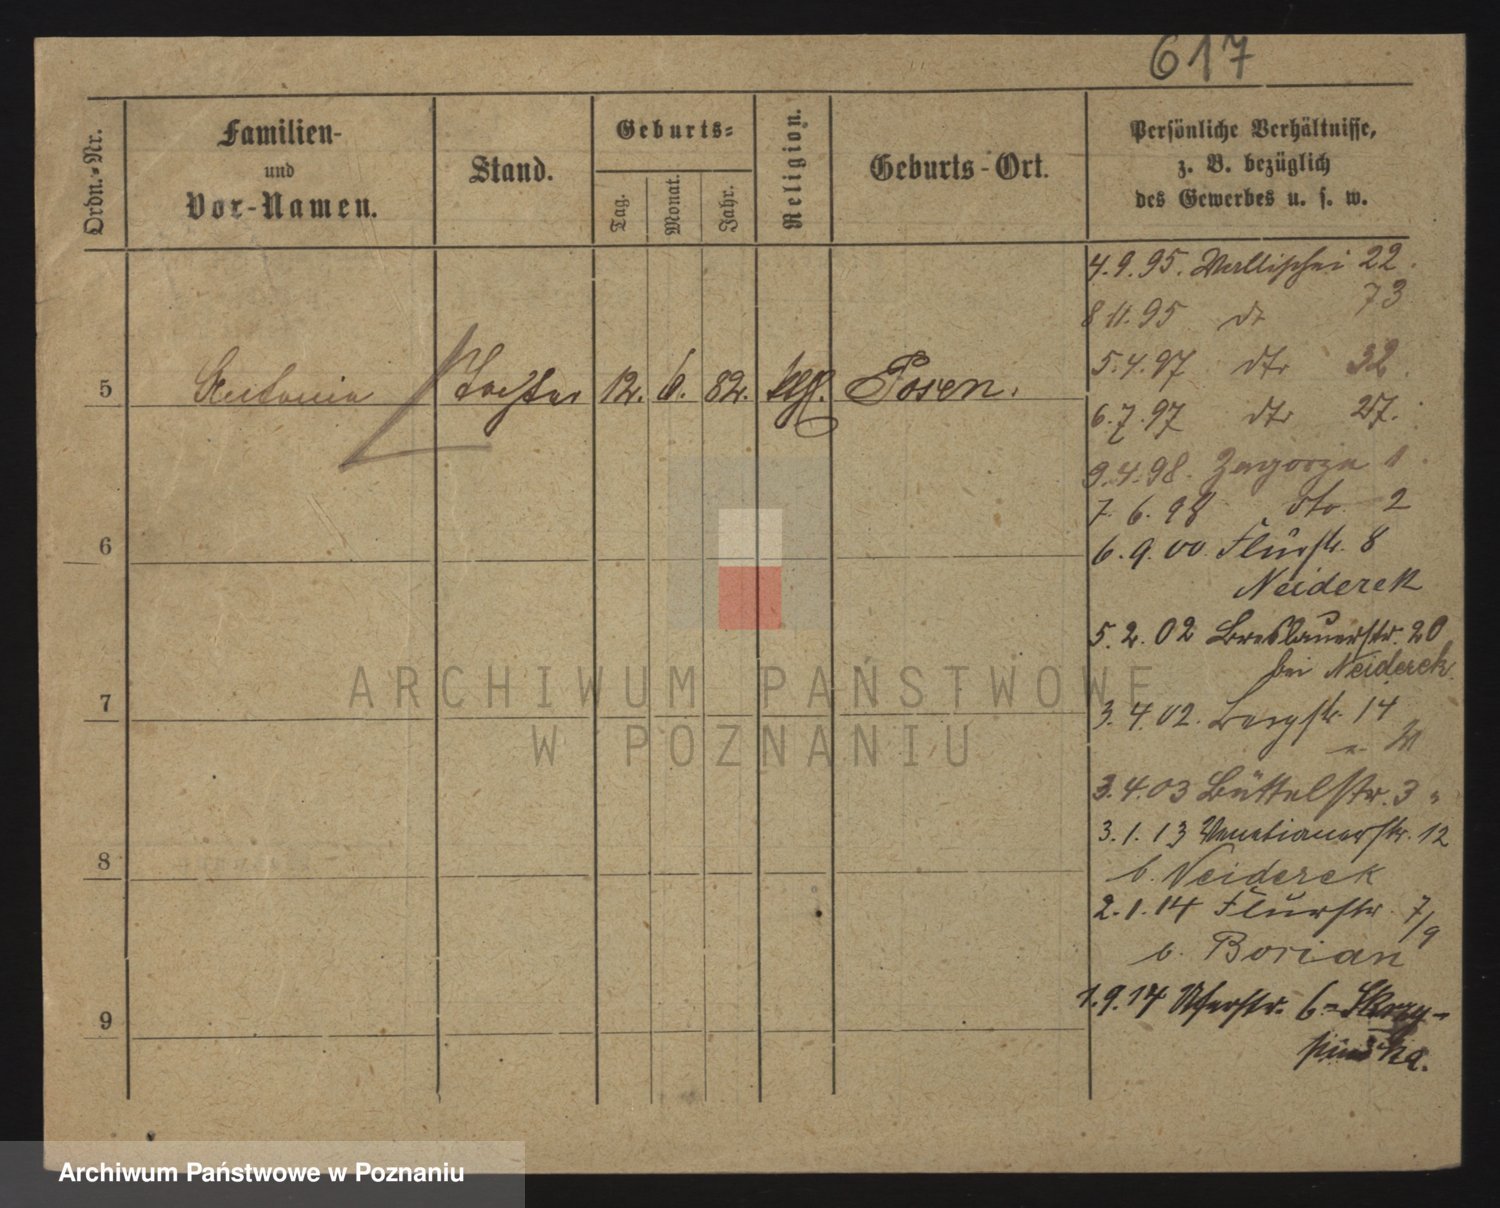 617
Ordn.-Nr.
Familien-
und
Vor-Namen.
Stand.
Geburts-
Tag.
Monat.
Jahr.
Religion.
Geburts-Ort.
Persönliche Verhältnisse,
z. B. bezüglich
des Gewerbes u. s. w.
5 Antonia Tochter 12. 6. 82. kath. Posen.
6
7
8
9
4.9.95. Wallischei 22.
8.11.95 dt 73
5.4.97 dto 32.
6.7.97 dto 27.
9.4.98. Zagorze 1
7.6.98 dto 2
6.9.00. Flurstr. 8
Neiderek
5.2.02 Breslauerstr. 20
bei Neiderek
3.4.02. Bergstr. 14
3.4.03 Büttelstr. 3 "
3.1.13 Venetianerstr. 12
b. Neiderek
2.1.14 Flurstr. 7/9
b. Borian
1.9.14 Uferstr. 6 - Skrzy-
pinska.
ARCHIWUM PAŃSTWOWE
W POZNANIU
Archiwum Państwowe w Poznaniu